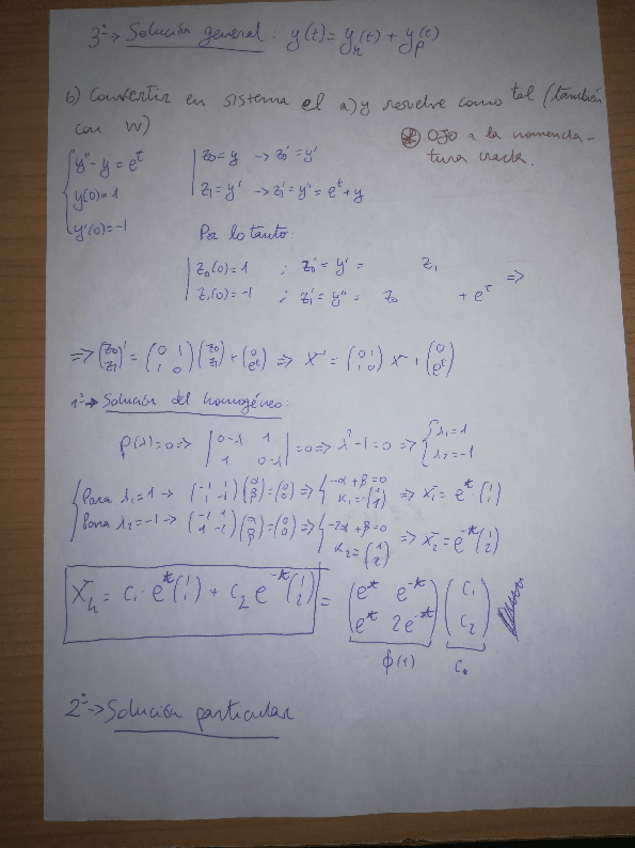 3º→ Solución general: y(t) = y_h(t) + y_p(t)
b) Convertir en sistema el a) y resolve como tal (también
con W)
⊛ OJO a la nomencla-
tura creada.
{ y'' - y = e^t
y(0) = 1
y'(0) = -1
| z₀ = y → z₀' = y'
z₁ = y' → z₁' = y'' = e^t + y
Por lo tanto:
| z₀(0) = 1 ; z₀' = y' = z₁
z₁(0) = -1 ; z₁' = y'' = z₀ + e^t ⇒
⇒ (z₀ z₁)' = (0 1; 1 0) (z₀ z₁) + (0 e^t) ⇒ X' = (0 1; 1 0) X + (0 e^t)
1º→ Solución del homogéneo:
P(λ)=0 ⇒ |0-λ 1; 1 0-λ| = 0 ⇒ λ² - 1 = 0 ⇒ { λ₁ = 1
λ₂ = -1
{ Para λ₁ = 1 → (-1 1; 1 -1) (α β) = (0 0) ⇒ { -α + β = 0
α₁ = (1 1) ⇒ X₁ = e^t (1 1)
Para λ₂ = -1 → (-2 1; 1 -2) (α β) = (0 0) ⇒ { -2α + β = 0
α₂ = (1 2) ⇒ X₂ = e^-t (1 2)
X_h = C₁ · e^t (1 1) + C₂ e^-t (1 2) = (e^t e^-t; e^t 2e^-t) (C₁ C₂)
ϕ(t) C₀
2º→ Solución particular